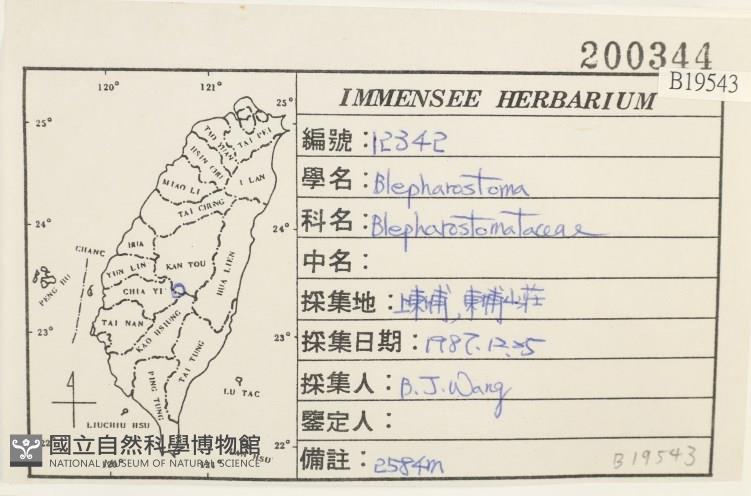 200344
B19543
IMMENSEE HERBARIUM
編號：12342
學名：Blepharostoma
科名：Blepharostomataceae
中名：
採集地：上東埔，東埔山莊
採集日期：1987.12.25
採集人：B.J.Wang
鑒定人：
備註：2584m
B19543
120° 121°
25° 25°
TAO YUAN TAI PEI
HSIN CHU
MIAO LI I LAN
TAI CHUNG
24° 24°
CHANG
HUA
YUN LIN NAN TOU
HUA LIEN
PENG HU
CHIA YI
23° 23°
TAI NAN
KAO HSIUNG
TAI TUNG
PING TUNG
LU TAO
LIUCHIU HSU
22° 22°
120° 121° HSU
國立自然科學博物館
NATIONAL MUSEUM OF NATURAL SCIENCE